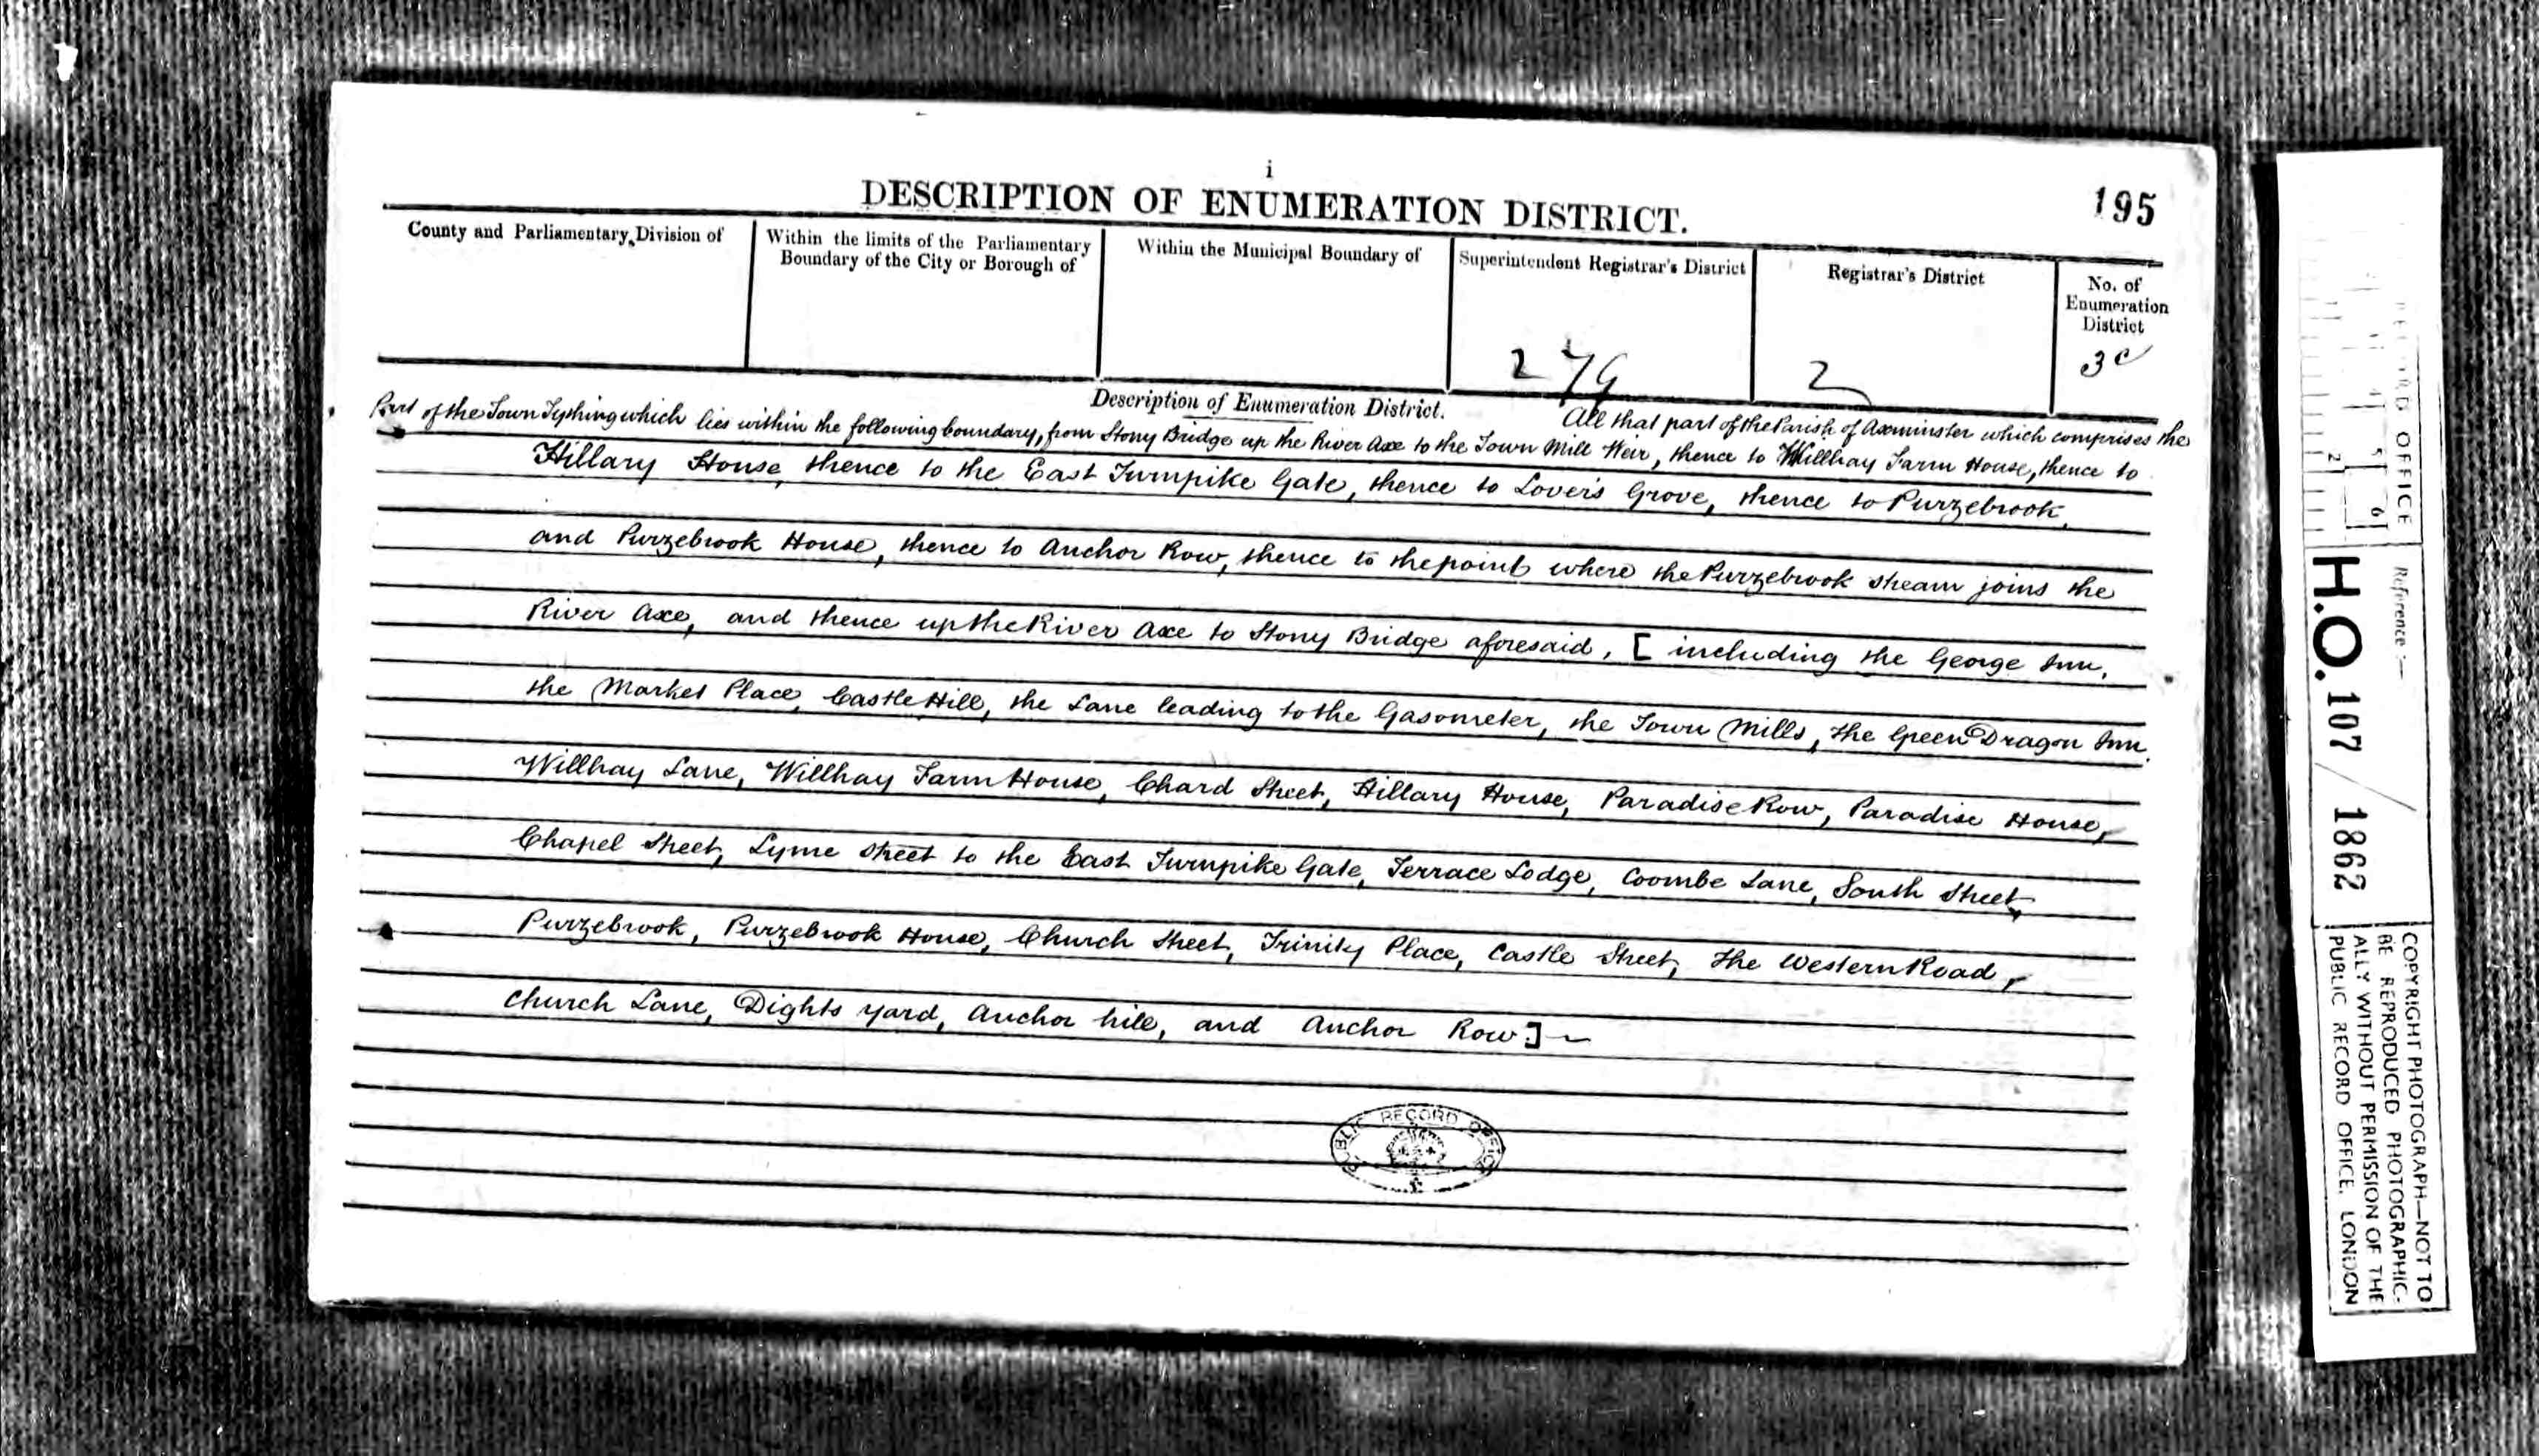 i
195
DESCRIPTION OF ENUMERATION DISTRICT.
County and Parliamentary Division of
Within the limits of the Parliamentary
Boundary of the City or Borough of
Within the Municipal Boundary of
Superintendent Registrar's District
Registrar's District
No. of
Enumeration
District
279
2
3c
Description of Enumeration District.
All that part of the Parish of Axminster which comprises the
Part of the Town Tything which lies within the following boundary, from Stony Bridge up the River Axe to the Town Mill Weir, thence to Willhay Farm House, thence to
Hillary House, thence to the East Turnpike Gate, thence to Lover's Grove, thence to Purzebrook,
and Purzebrook House, thence to Anchor Row, thence to the point where the Purzebrook stream joins the
River Axe, and thence up the River Axe to Stony Bridge aforesaid, [ including the George Inn,
the Market Place, Castle Hill, the Lane leading to the Gasometer, the Town Mills, the Green Dragon Inn
Willhay Lane, Willhay Farm House, Chard Street, Hillary House, Paradise Row, Paradise House,
Chapel Street, Lyme Street to the East Turnpike Gate, Terrace Lodge, Coombe Lane, South Street,
Purzebrook, Purzebrook House, Church Street, Trinity Place, Castle Street, the Western Road,
Church Lane, Dights yard, Anchor hill, and Anchor Row.] ~
PUBLIC RECORD OFFICE
RECORD OFFICE
1
2
5
6
Reference :—
H.O. 107 / 1862
COPYRIGHT PHOTOGRAPH—NOT TO
BE REPRODUCED PHOTOGRAPHIC-
ALLY WITHOUT PERMISSION OF THE
PUBLIC RECORD OFFICE, LONDON